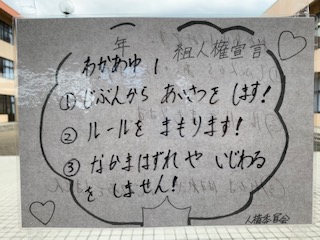 年 組人権宣言
わかあゆ 1.
① じぶんから あいさつを します!
② ルールを まもります!
③ なかまはずれ や いじわる
を しません!
人権委員会